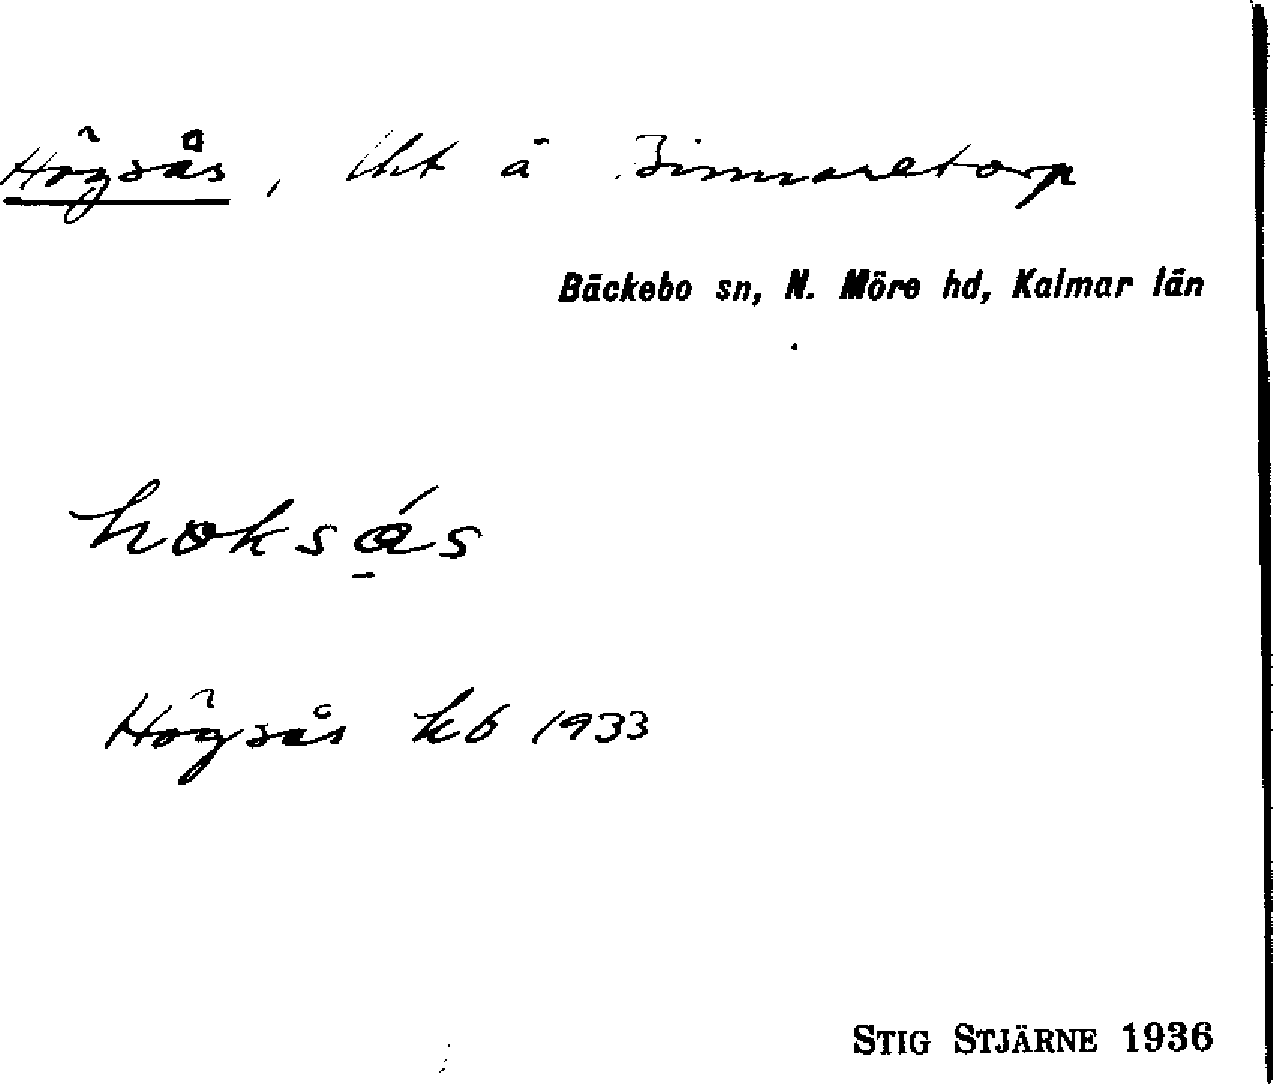 Högsås, lht å Binnaretorp
Bäckebo sn, N. Möre hd, Kalmar län
Högsås kb 1933
STIG STJÄRNE 1936